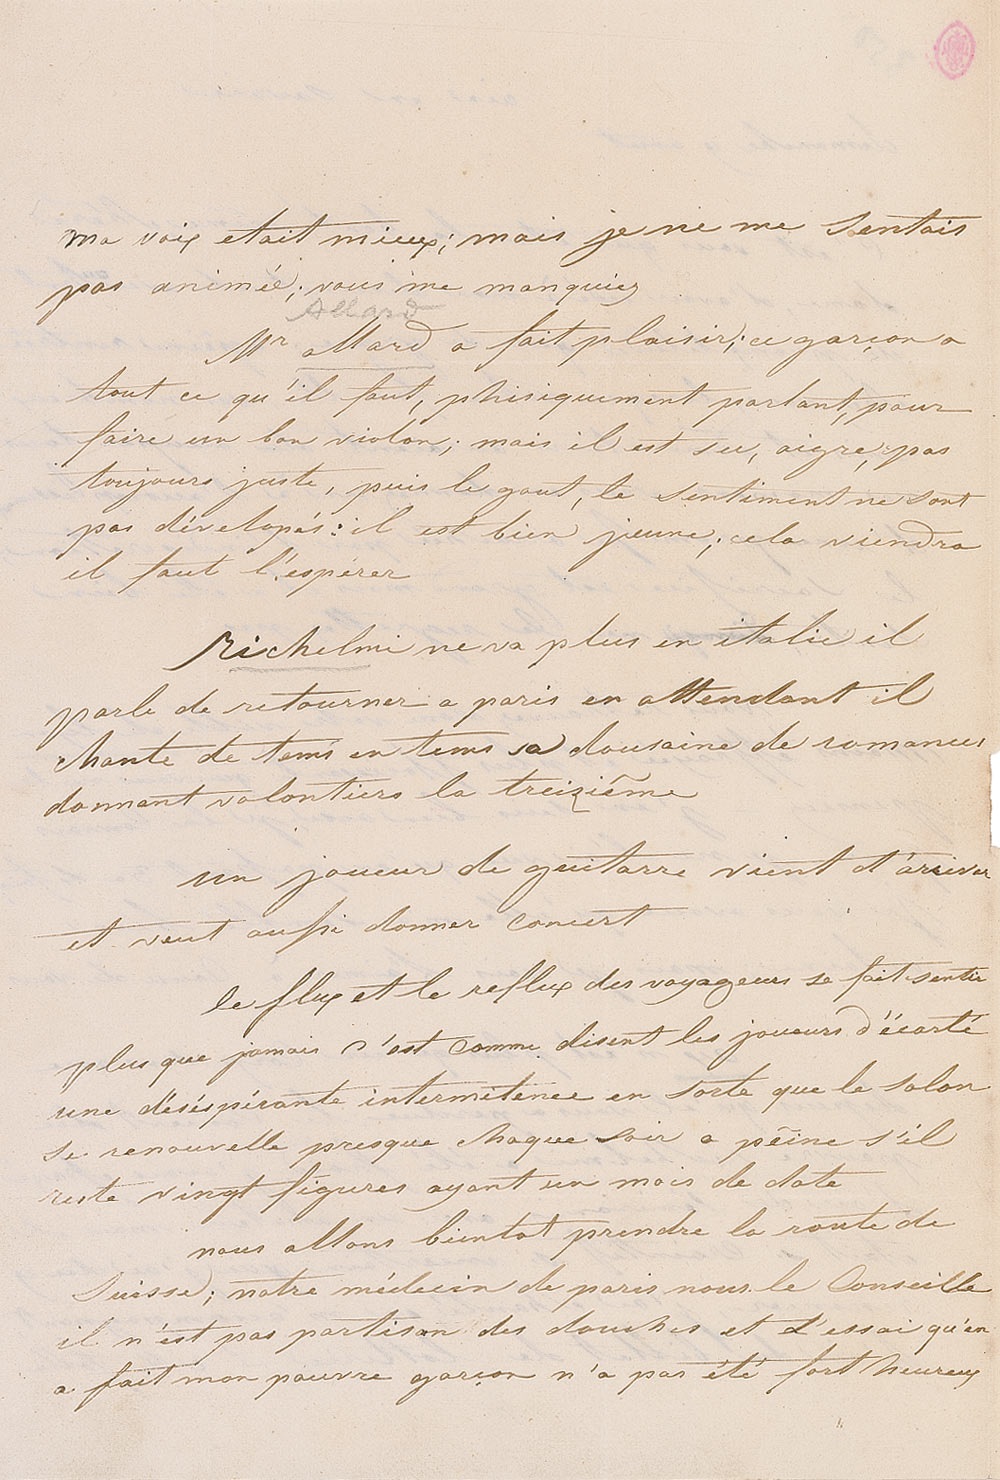 ma voix etait mieux; mais je ne me sentais
pas animée; vous me manquiez
Allard
Mr allard a fait plaisir; ce garçon a
tout ce qu'il faut, phisiquement parlant, pour
faire un bon violon; mais il est sec, aigre, pas
toujours juste, puis le gout, le sentiment ne sont
pas dévelopés: il est bien jeune; cela viendra
il faut l'espérer
Richelmi ne va plus en italie il
parle de retourner a paris en attendant il
chante de tems en tems sa dousaine de romances
donnant volontiers la treizième
un joueur de guitarre vient d'arriver
et veut aussi donner concert
le flux et le reflux des voyageurs se fait sentir
plus que jamais c'est comme disent les joueurs d'écarté
une déséspérante intermitence en sorte que le salon
se renouvelle presque chaque soir a peine s'il
reste vingt figures ayant un mois de date
nous allons bientot prendre la route de
Suisse; notre médecin de paris nous le Conseille
il n'est pas partisan des douches et l'essai qu'en
a fait mon pauvre garçon n'a pas été fort heureux